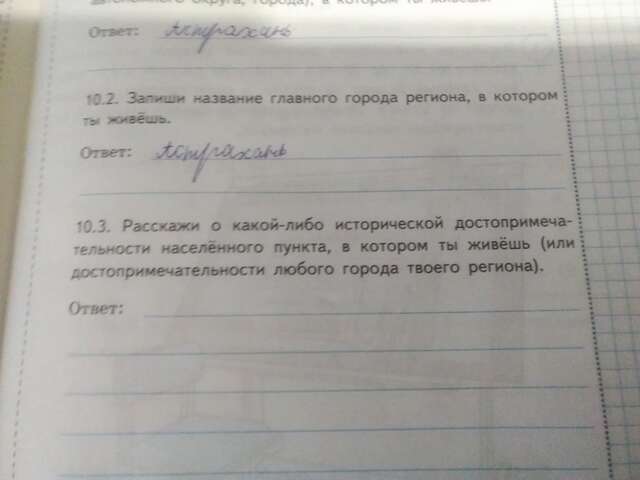 автономного округа, города), в котором ты живёшь.
Ответ: Астрахань
10.2. Запиши название главного города региона, в котором
ты живёшь.
Ответ: Астрахань
10.3. Расскажи о какой-либо исторической достопримеча-
тельности населённого пункта, в котором ты живёшь (или
достопримечательности любого города твоего региона).
Ответ: